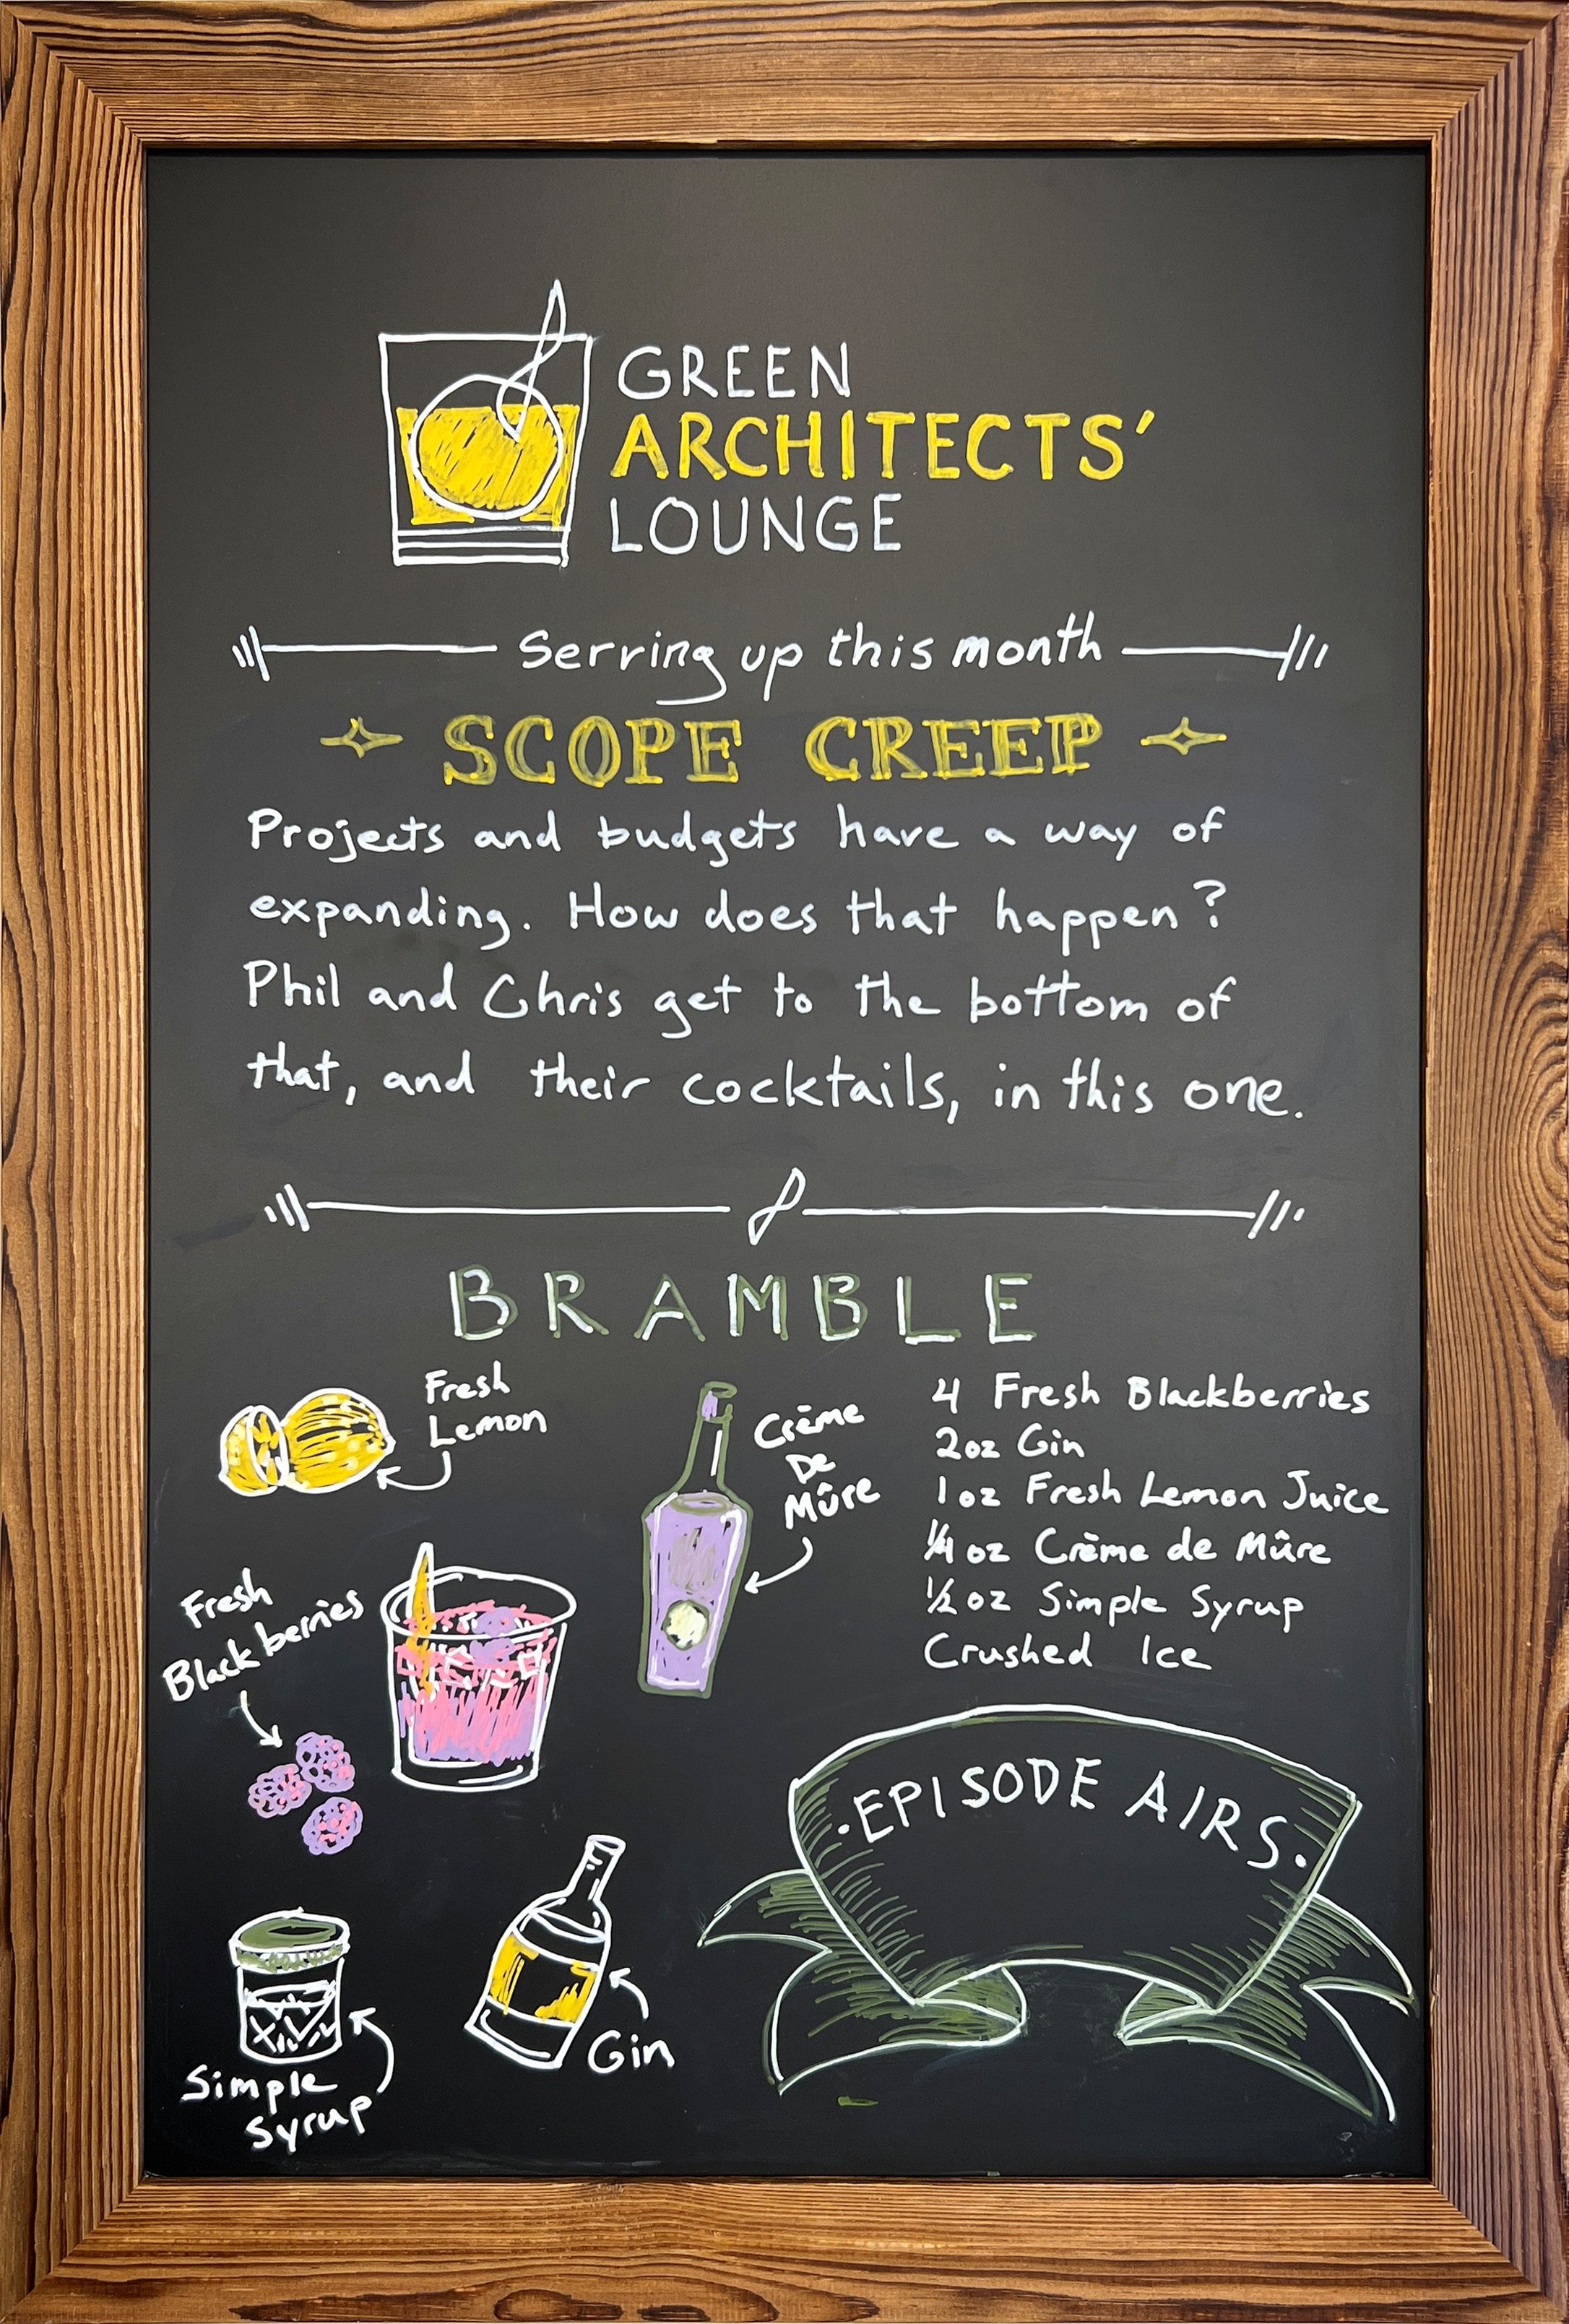 GREEN
ARCHITECTS'
LOUNGE
Serving up this month
SCOPE CREEP
Projects and budgets have a way of
expanding. How does that happen?
Phil and Chris get to the bottom of
that, and their cocktails, in this one.
BRAMBLE
Fresh
Lemon
Crème
De
Mûre
Fresh
Blackberries
Simple
Syrup
Gin
4 Fresh Blackberries
2oz Gin
1oz Fresh Lemon Juice
1/4 oz Crème de Mûre
1/2 oz Simple Syrup
Crushed Ice
·EPISODE AIRS·